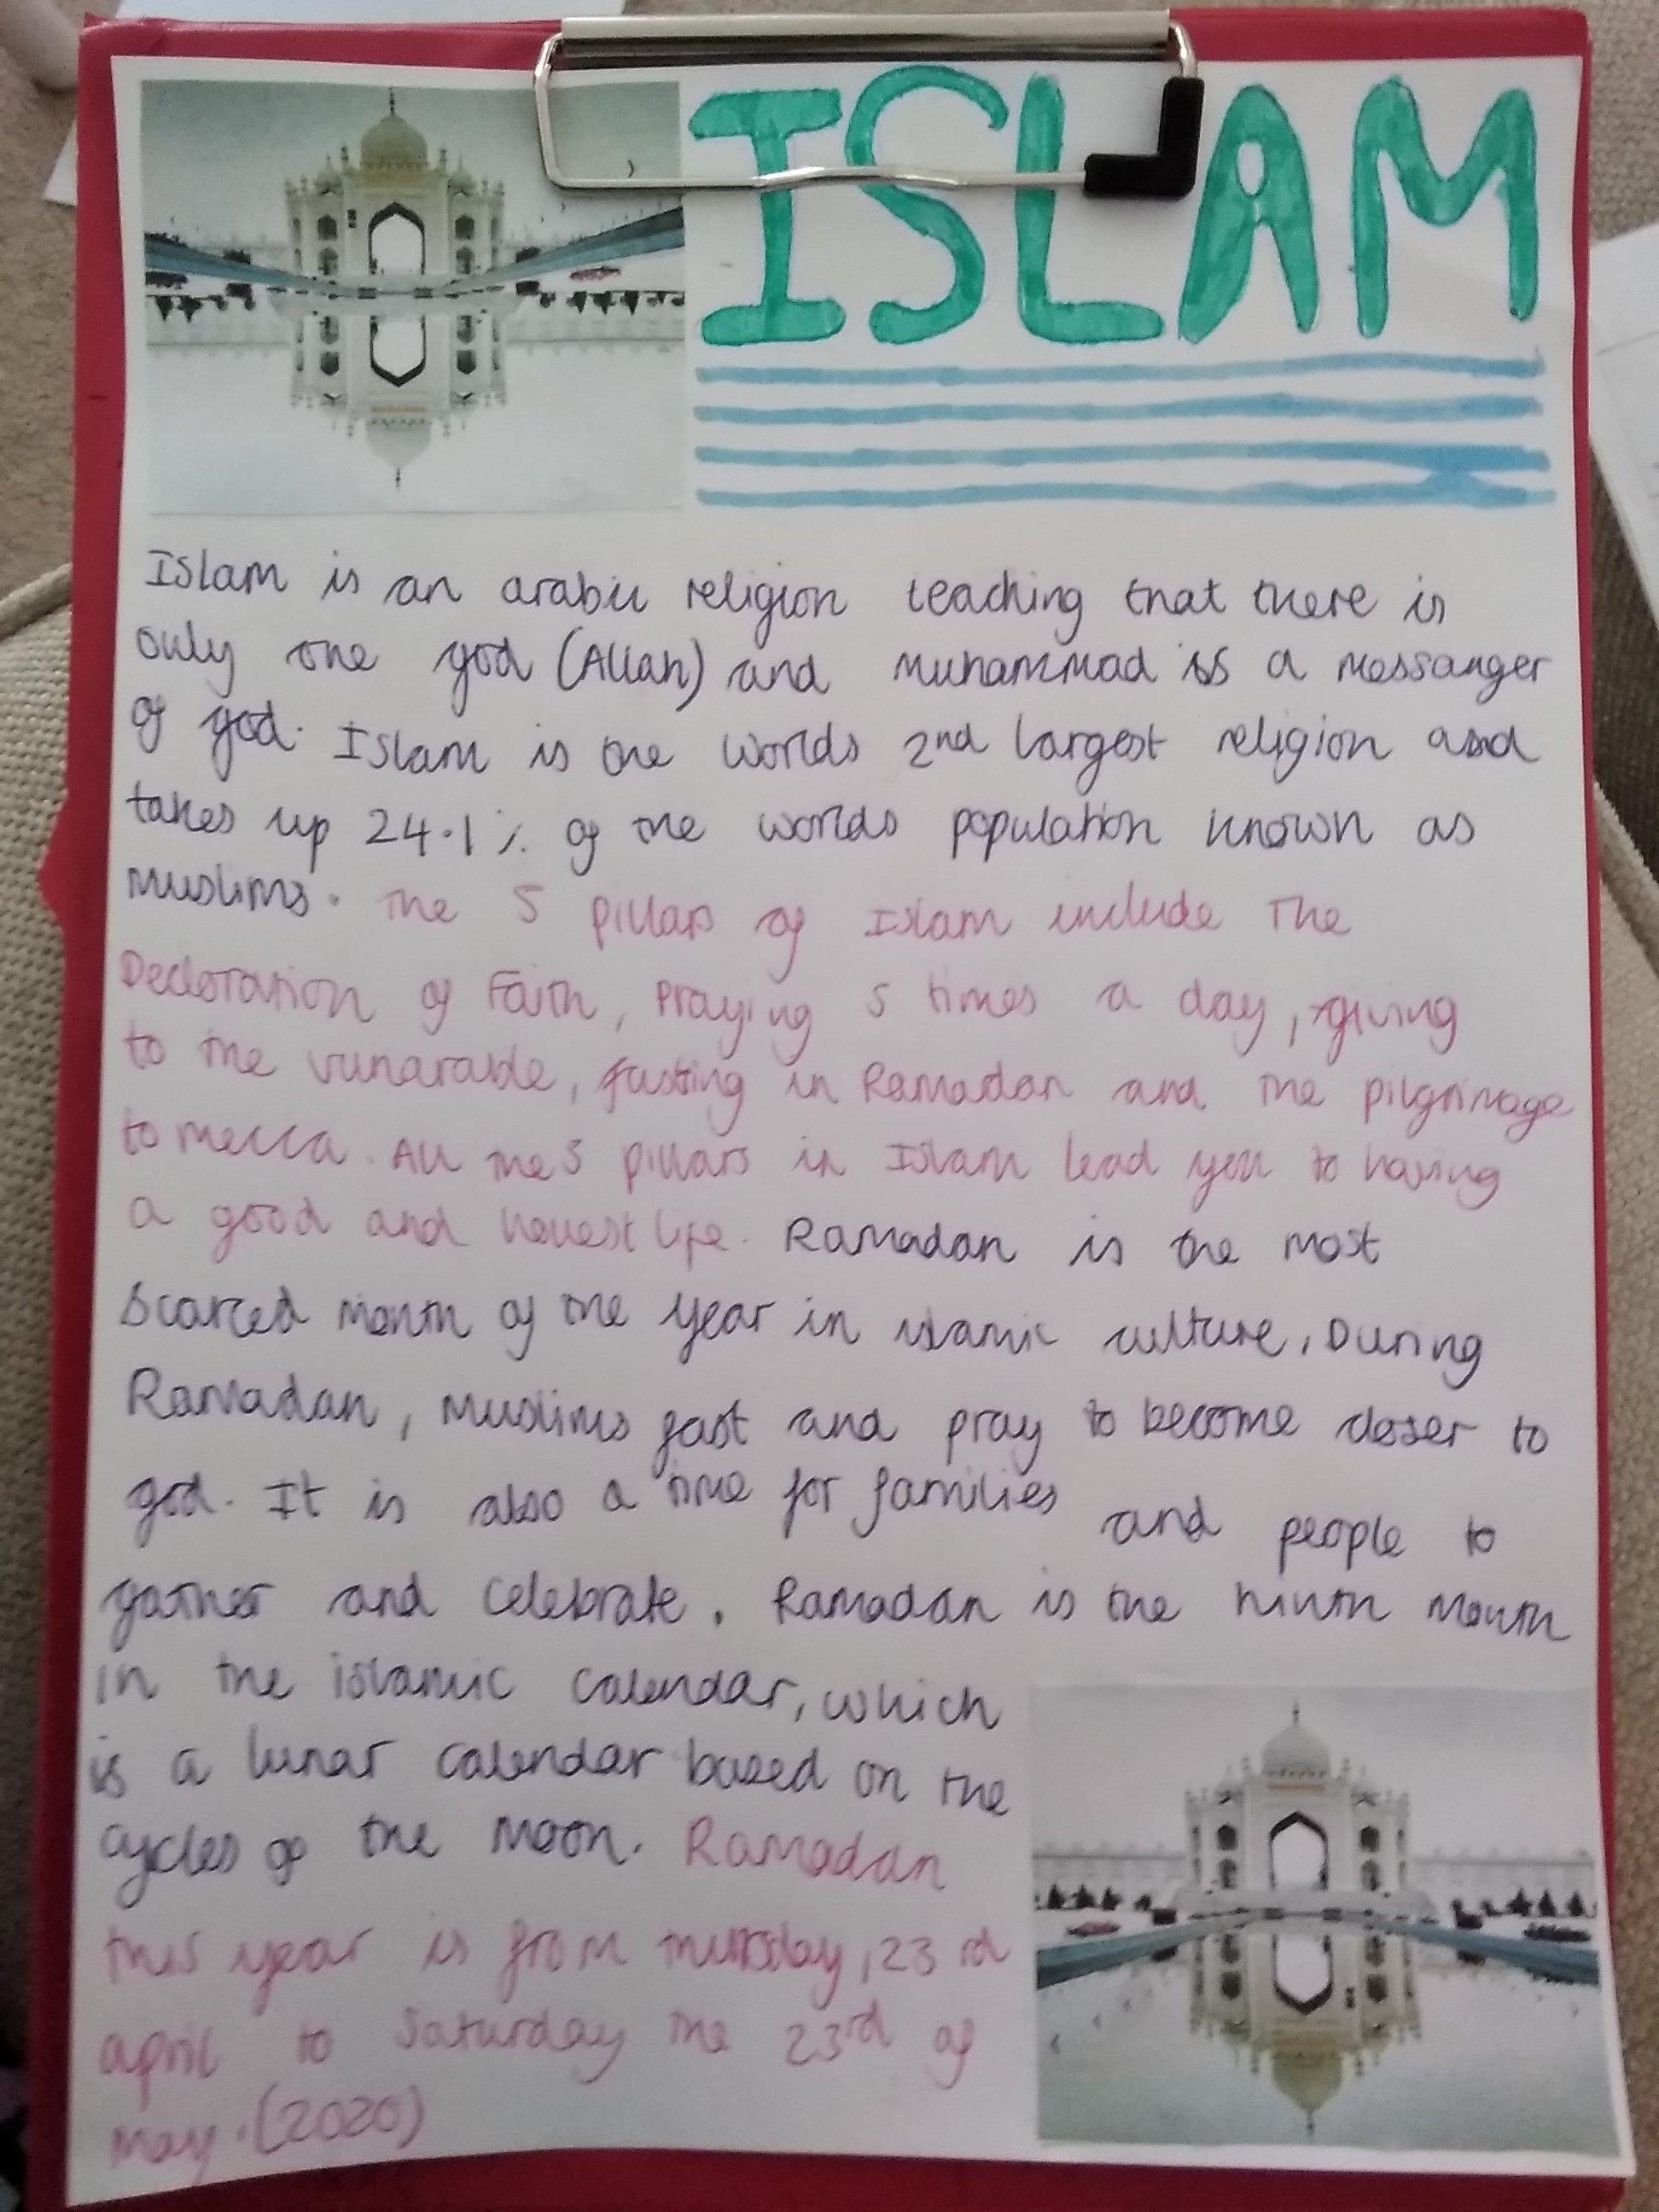 ISLAM
Islam is an arabic religion teaching that there is
only one god (Allah) and Muhammad is a messanger
of god. Islam is the worlds 2nd largest religion and
takes up 24.1% of the worlds population known as
Muslims. The 5 pillars of Islam include The
Decloration of Faith, Praying 5 times a day, giving
to the vunarable, fasting in Ramadan and the pilgrimage
to mecca. All the 5 pillars in Islam lead you to having
a good and honest life. Ramadan is the most
scarced month of the year in islamic culture, During
Ramadan, Muslims fast and pray to become closer to
god. It is also a time for families and people to
gather and celebrate. Ramadan is the ninth month
in the islamic calendar, which
is a lunar calendar based on the
cycles of the moon. Ramadan
this year is from thursday, 23rd
april to Saturday the 23rd of
may. (2020)